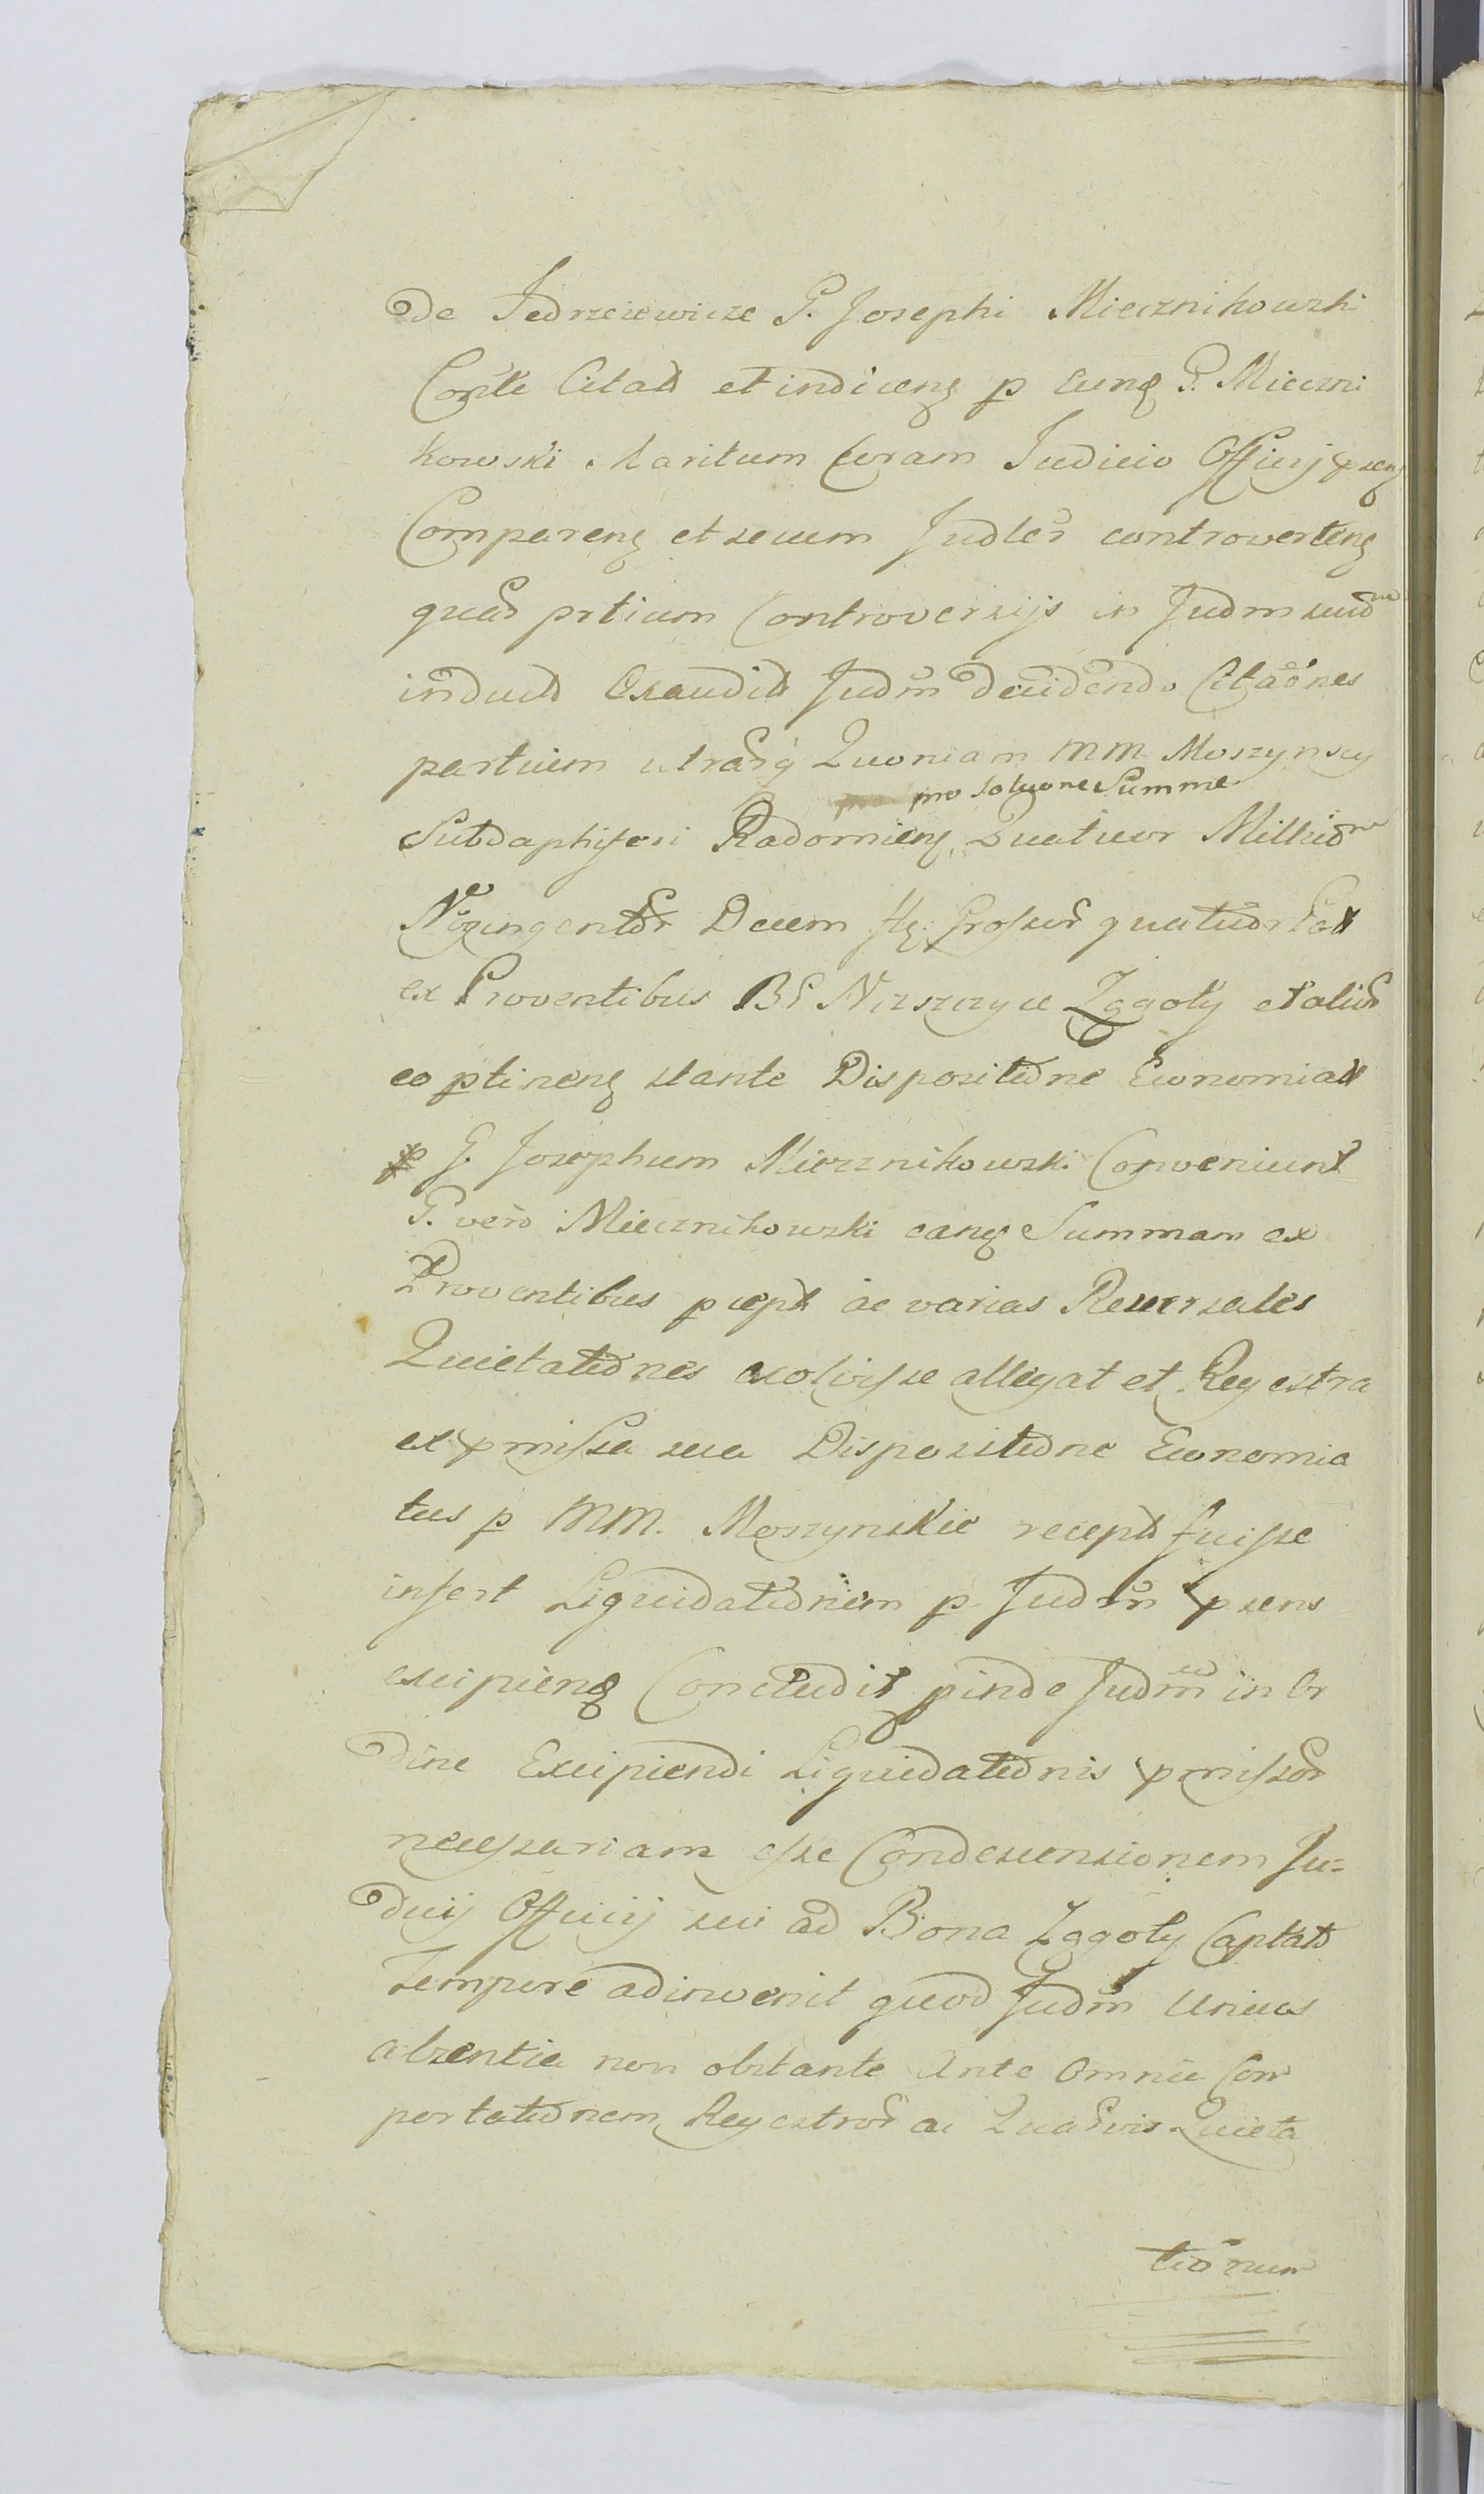 de Jedrzeiewicze G. Josephi Miecznikowski
Corile Citad et indiceng p eung G. Mieczni
kowski Maritum Coram Judicio Officij pseng
Compareng et secum Judler controverteng
quar prtium Controversijs in Judm suud
inductd Exaudid Judm decidendo Citaones
partium utrarq Quoniam MM Moszynscy
pro soluone Summe
Subdaphiferi Radomieng Quatuor Millium
Nogingentor Decem flg. Grossor quatuor
ex Proventibus BR Niszczyce Zągoty et alior
eo ptineng stante Dispositione Economiad
p G. Josephum Miecznikowski Conveniunt
G. vero Miecznikowski eang Summam ex
Proventibus pcept ac varias Reversales
Quietationes exolvisse allegat et Regestra
ex pmissa sua Dispositione Economia
tus p MM. Moszynskie receptd fuisse
infert Liquidationem p Judm psens
excipieng Concludit pinde Judm in Or
dine Excipiendi Liquidationis pmissor
necessariam esse Condescensionem Ju=
dicij Officij sui ad Bona Zągoty Captatd
Tempore adinvenit quod Judm Unius
absentia non obstante Ante Omnia Com
portationem Regestror ac Quarvis Quieta
tionum